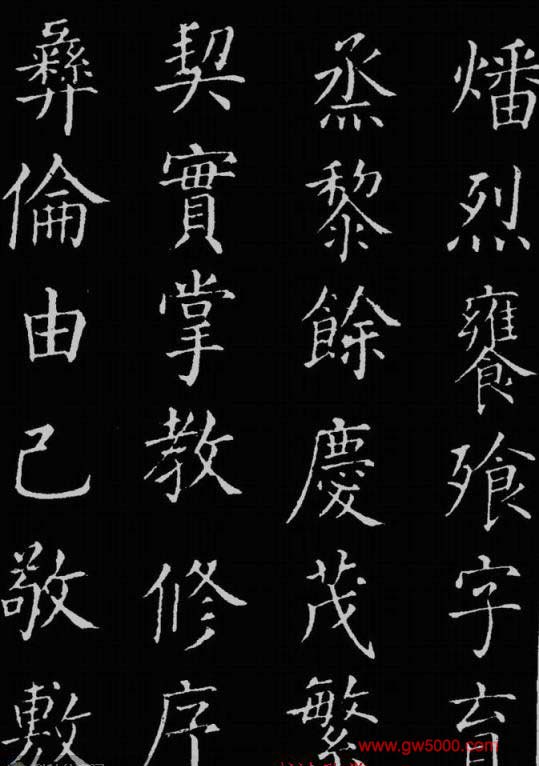 燔烈饔飧字育
烝黎餘慶茂繁
契實掌教修序
彝倫由己敬敷
www.gw5000.com